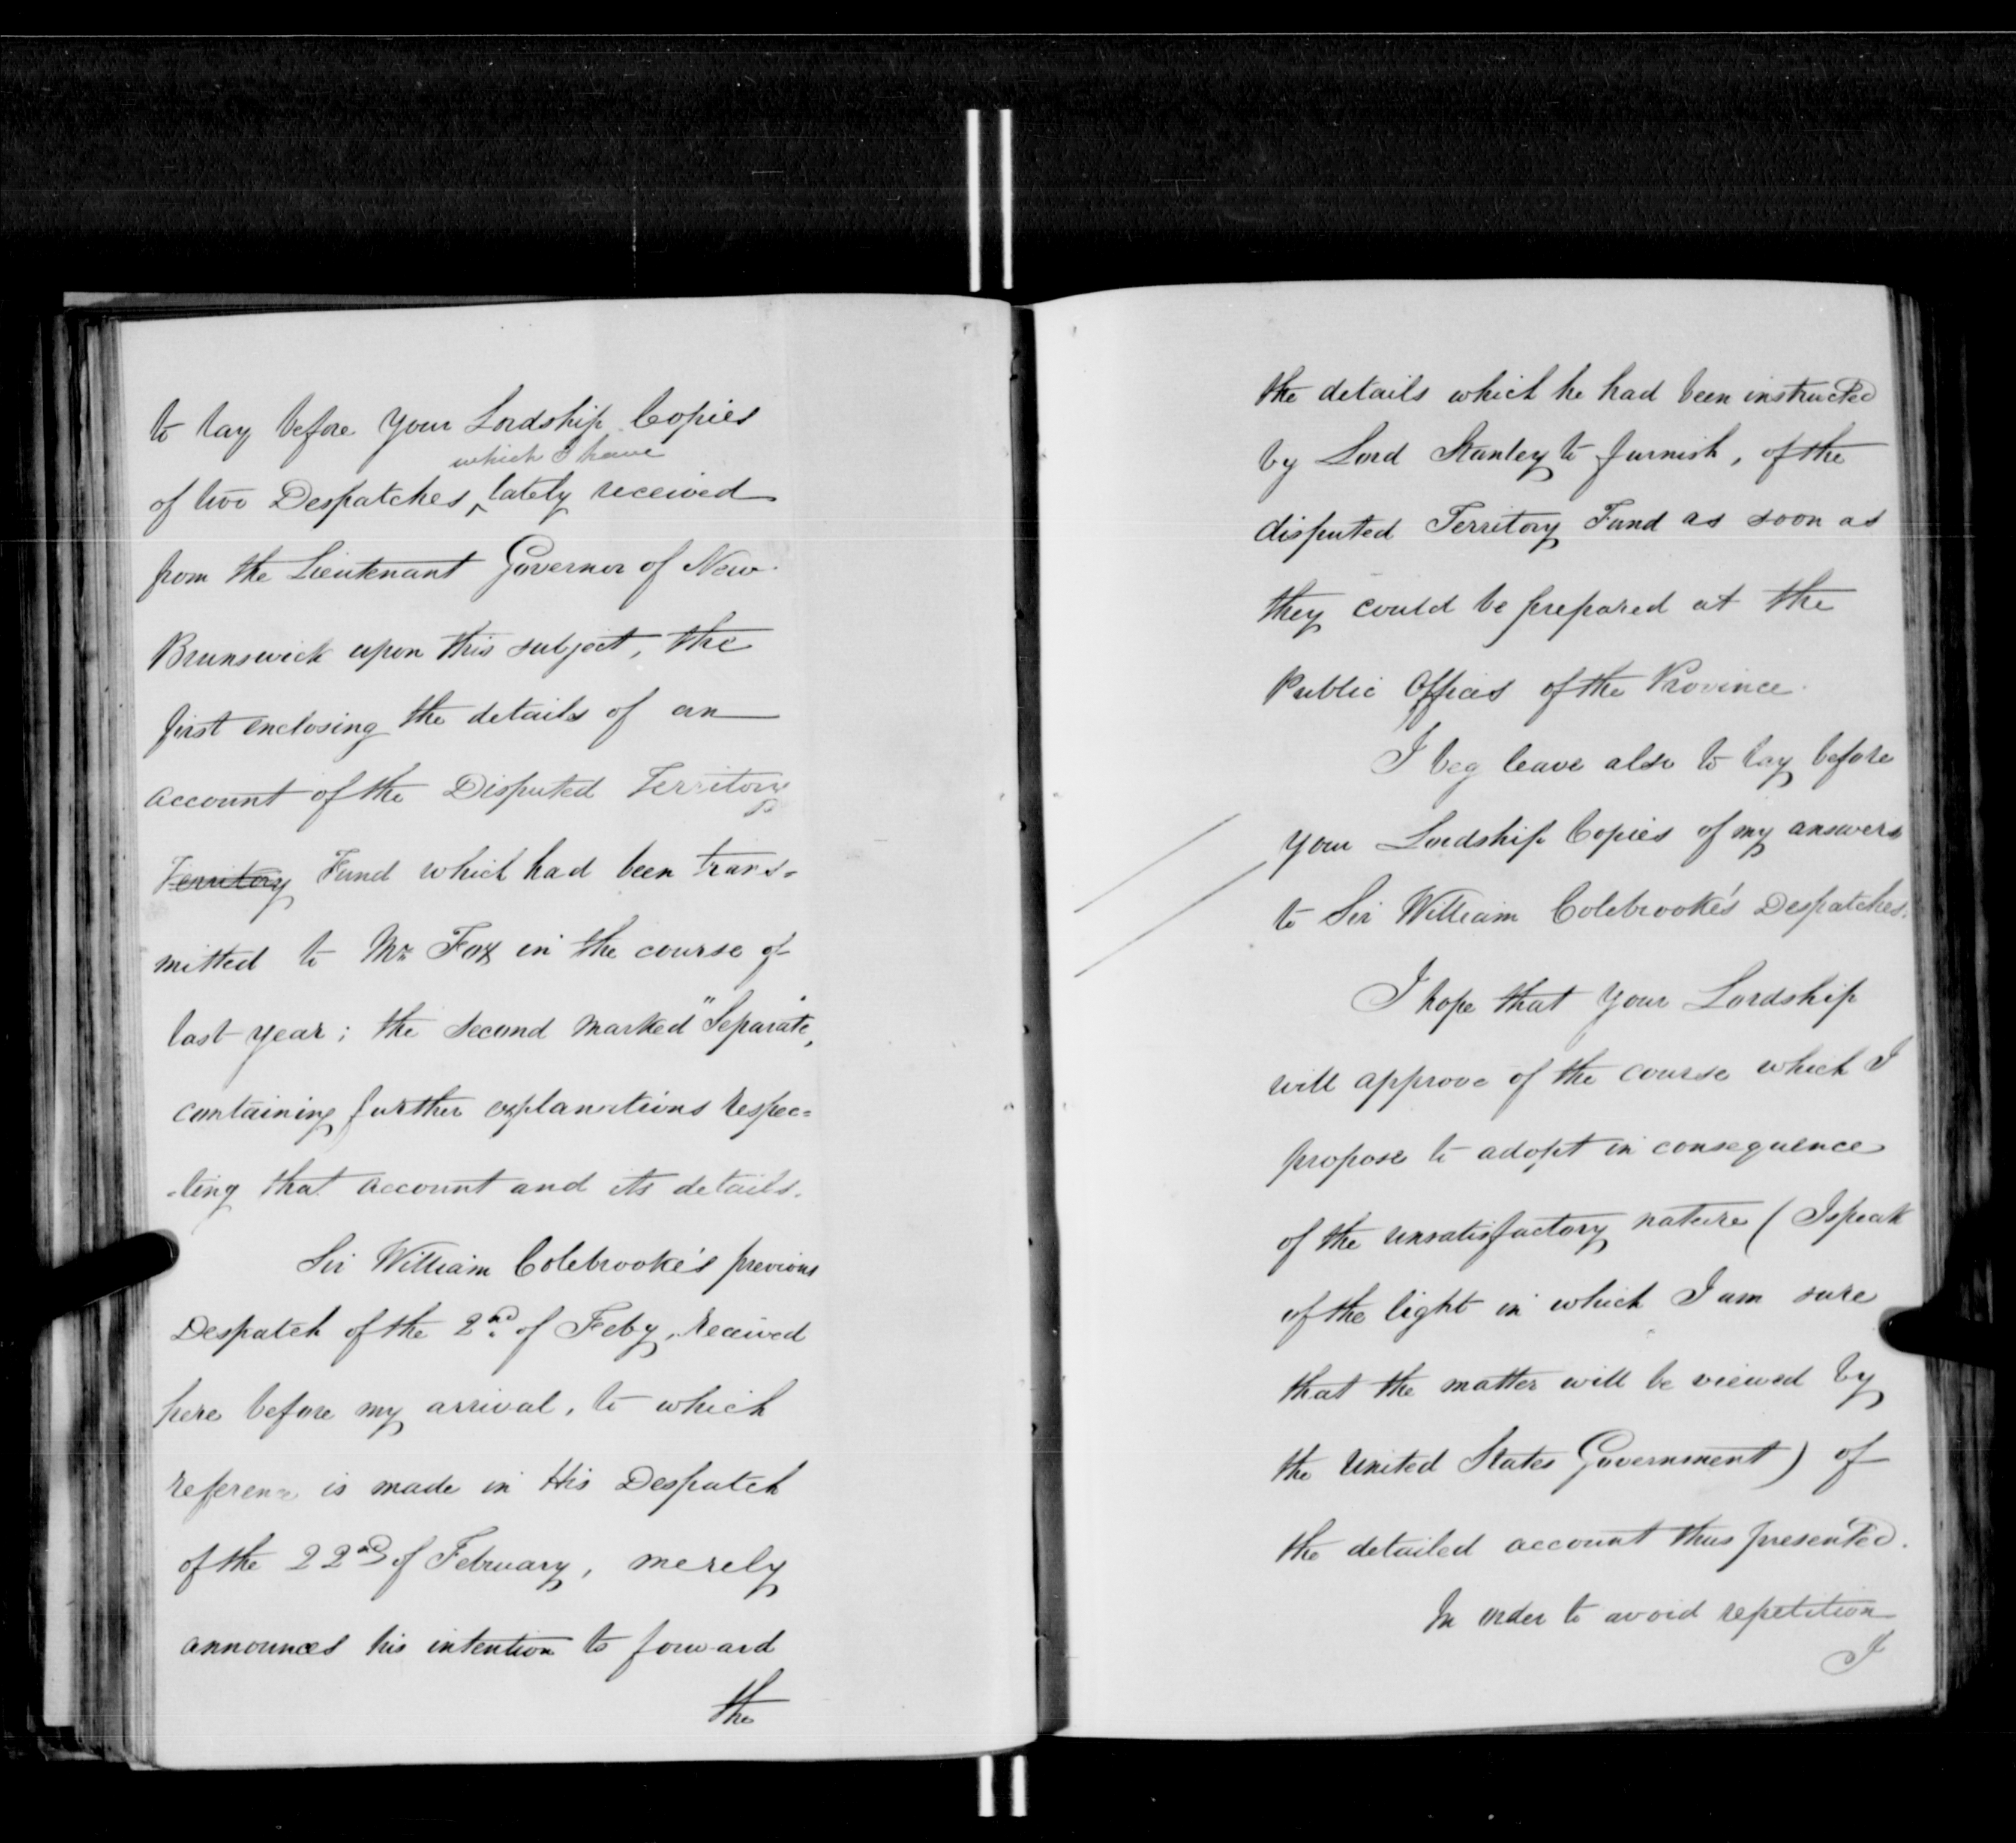 to lay before Your Lordship Copies
which I have
of two Despatches, lately received
from the Lieutenant Governor of New
Brunswick upon this subject, the
first enclosing the details of an
account of the Disputed Territory
Territory Fund which had been trans=
mitted to Mr Fox in the course of
last year; the second marked "Separate",
containing further explanations respec=
=ting that account and its details.
Sir William Colebrooke's previous
Despatch of the 2nd of Feby, received
here before my arrival, to which
reference is made in His Despatch
of the 22nd of February, merely
announces his intention to forward
the
the details which he had been instructed
by Lord Stanley to furnish, of the
disputed Territory Fund as soon as
they could be prepared at the
Public Offices of the Province.
I beg leave also to lay before
Your Lordship Copies of my answers
to Sir William Colebrooke's Despatches.
I hope that Your Lordship
will approve of the course which I
propose to adopt in consequence
of the unsatisfactory nature (I speak
of the light in which I am sure
that the matter will be viewed by
the United States Government) of
the detailed account thus presented.
In order to avoid repetition
I